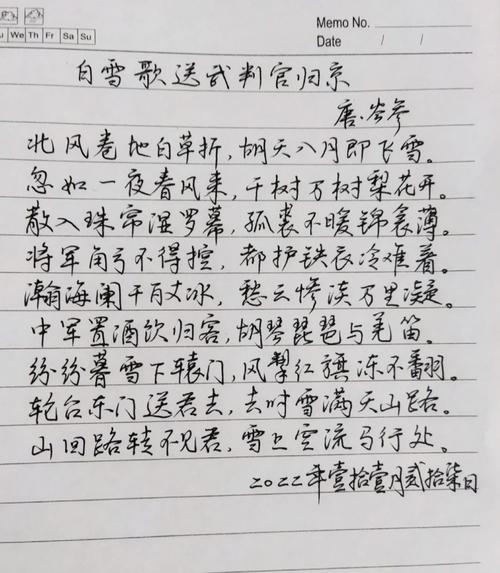 Memo No.
u We Th Fr Sa Su
Date / /
白雪歌送武判官归京
唐.岑参
北风卷地白草折,胡天八月即飞雪。
忽如一夜春风来,千树万树梨花开。
散入珠帘湿罗幕,狐裘不暖锦衾薄。
将军角弓不得控,都护铁衣冷难着。
瀚海阑干百丈冰,愁云惨淡万里凝。
中军置酒饮归客,胡琴琵琶与羌笛。
纷纷暮雪下辕门,风掣红旗冻不翻。
轮台东门送君去,去时雪满天山路。
山回路转不见君,雪上空流马行处。
2022年壹拾壹月贰拾柒日